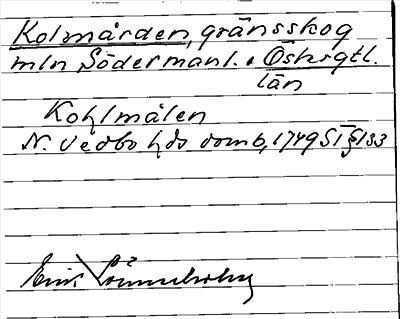 Kolmården, gränsskog
mln Södermanl. o Östergtl.
län
Kohlmålen
N. Vedbo hds domb, 1749 S1 § 133